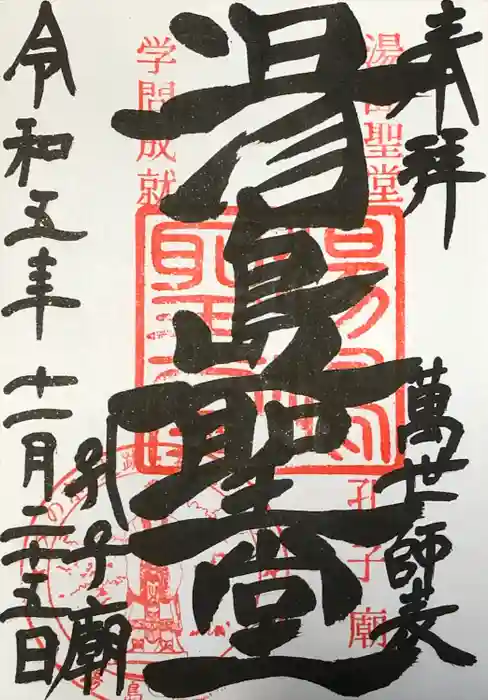 奉拝
萬世師表
湯島聖堂
孔子廟
湯島聖堂
孔子廟
学問成就
令和五年十一月二十五日